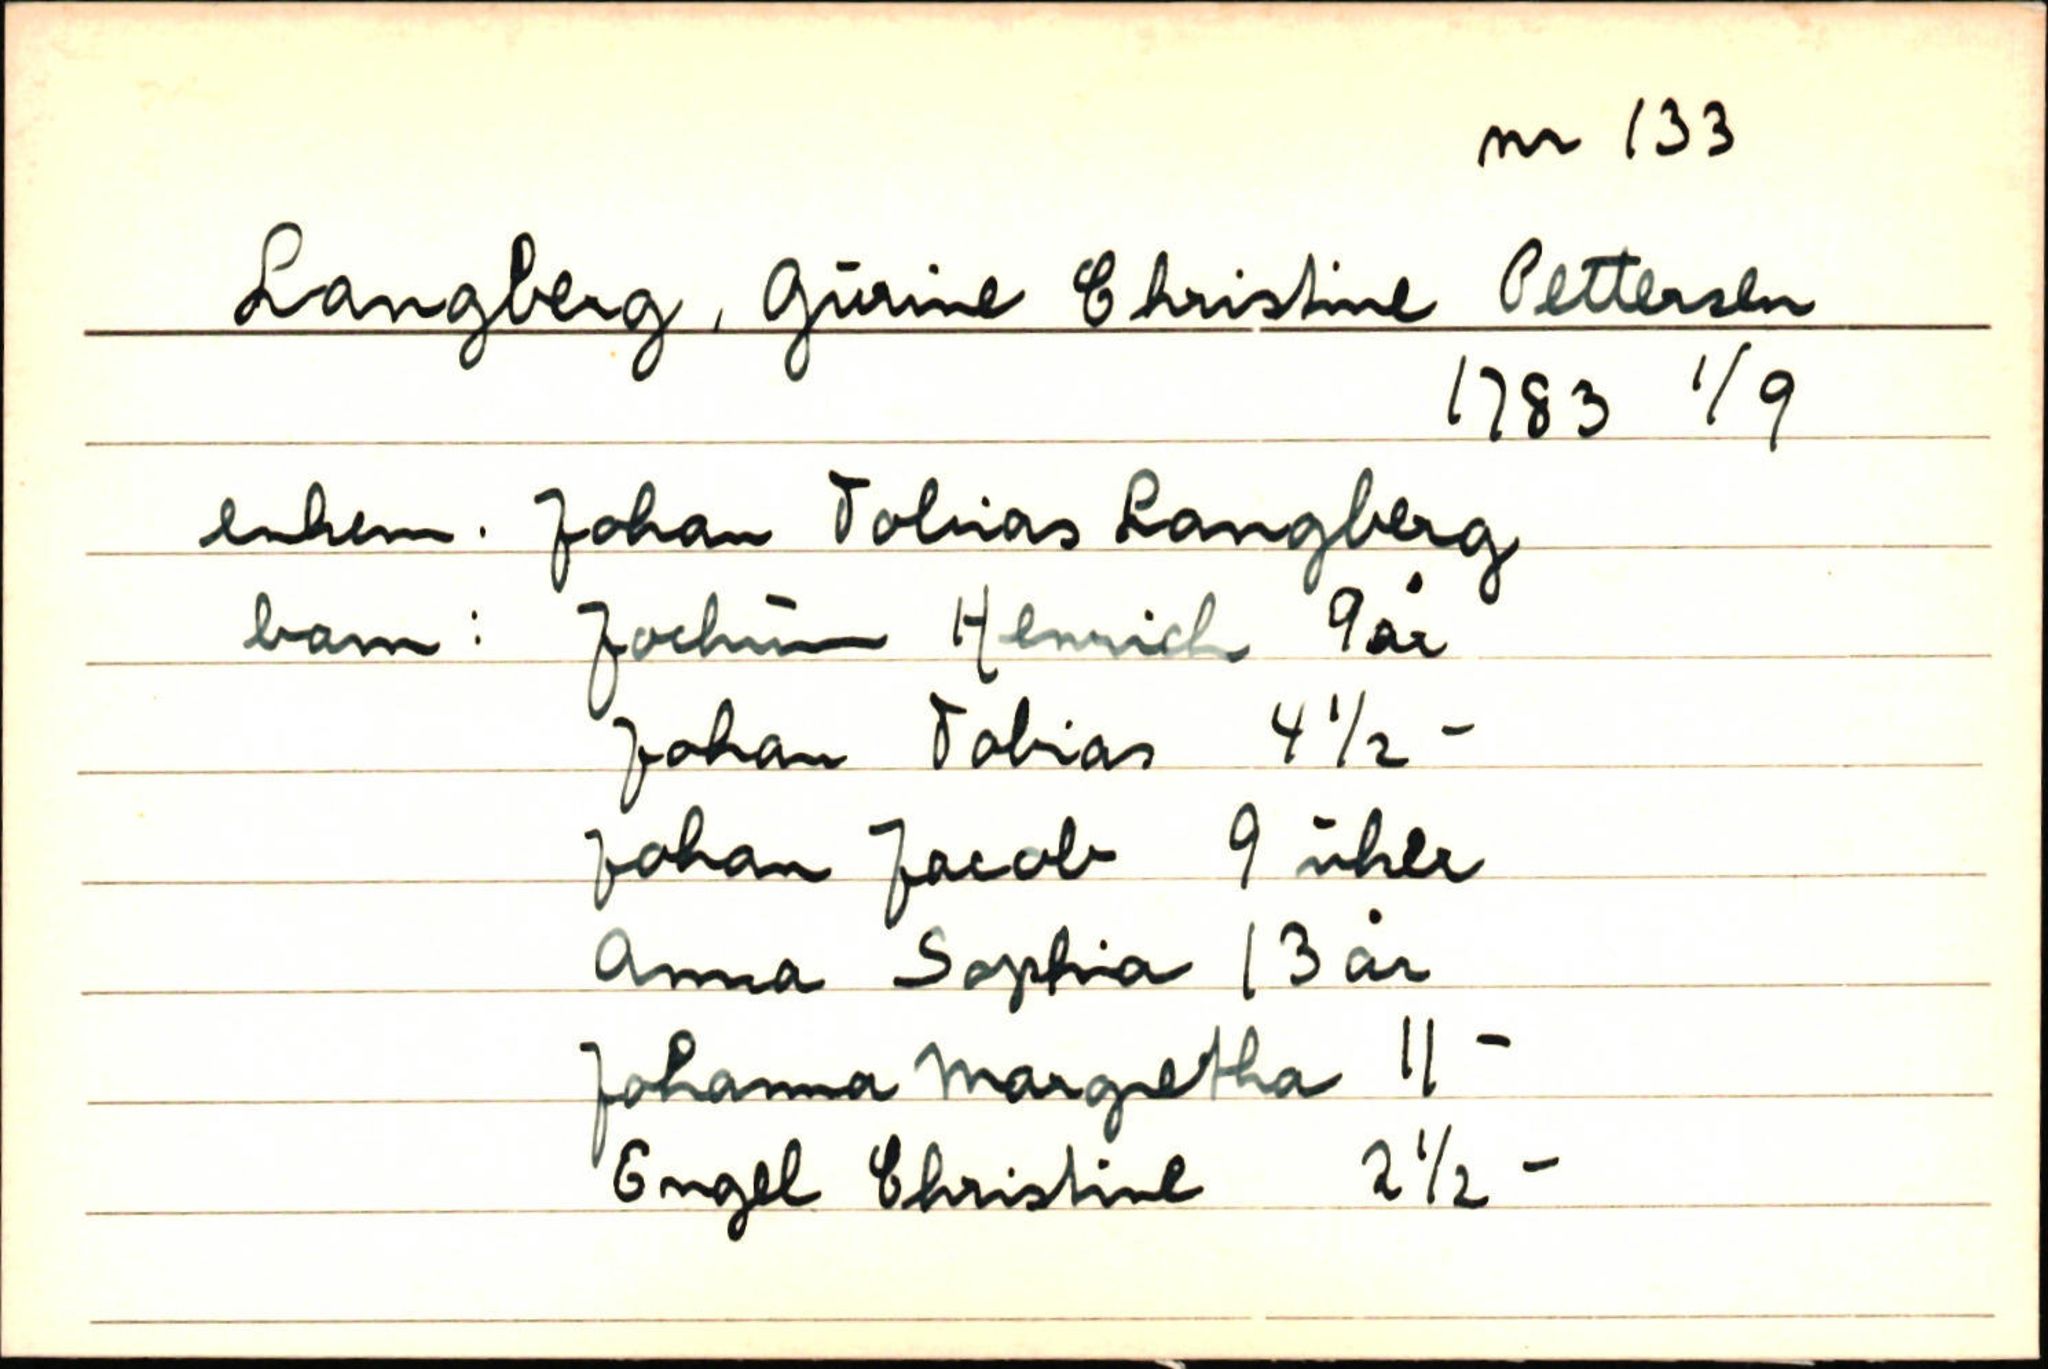 nr 133
Langberg, Gūrine Christine Pettersen
1783 1/9
enkem. Johan Tobias Langberg
barn: Jochūm Henrich 9 år
Johan Tobias 4 1/2 -
Johan Jacob 9 ūker
Anna Sophia 13 år
Johanna Margretha 11 -
Engel Christine 2 1/2 -